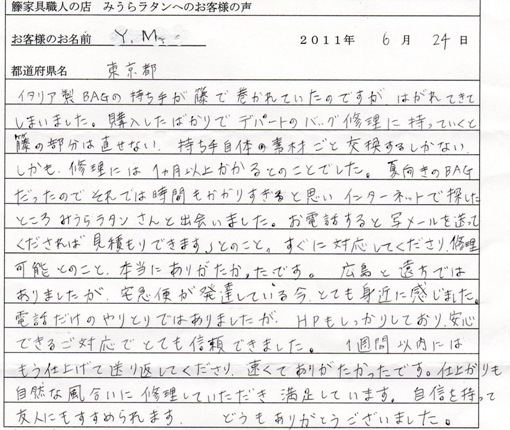 籐家具職人の店 みうらラタンへのお客様の声
お客様のお名前 Y.M
2011年 6月 24日
都道府県名 東京都
イタリア製BAGの持ち手が藤で巻かれていたのですが はがれてきて
しまいました。購入したばかりでデパートのバッグ修理に持っていくと
籐の部分は直せない、持ち手自体の素材ごと交換するしかない、
しかも、修理には1ヶ月以上かかるとのことでした。夏向きのBAG
だったので それでは時間もかかりすぎると思い インターネットで探した
ところ みうらラタンさんと出会いました。お電話すると写メールを送って
くだされば見積もりできます」とのこと。すぐに対応してくださり、修理
可能とのこと、本当にありがたかったです。 広島と遠方では
ありましたが、宅急便が発達している今、とても身近に感じました。
電話だけのやりとりではありましたが、HPもしっかりしており、安心
できるご対応でとても信頼できました。 1週間以内には
もう仕上げて送り返してくださり、速くてありがたかったです。仕上がりも
自然な風合いに修理していただき 満足しています。自信を持って
友人にもすすめられます。 どうもありがとうございました。